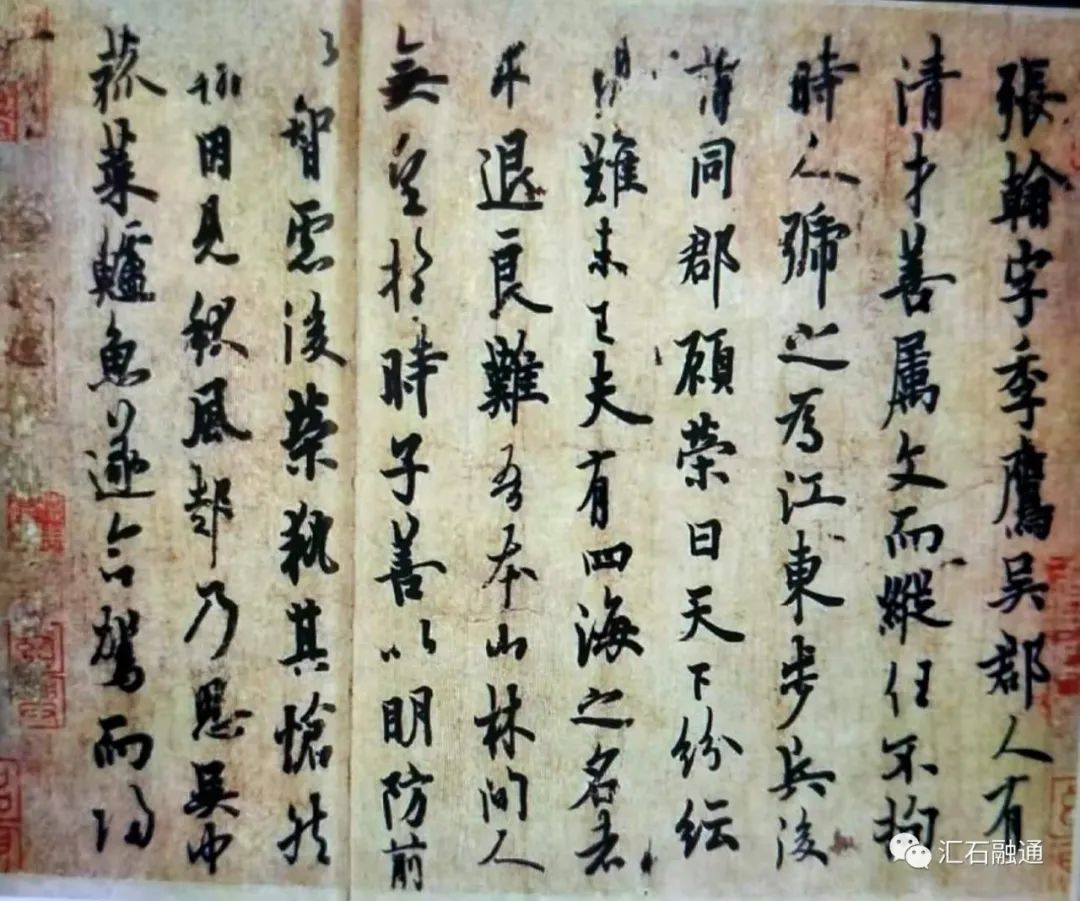 張翰字季鷹吳郡人有
清才善属文而縱任不拘
時人號之為江東步兵後
同郡顧榮曰天下紛紜
難未已夫有四海之名者
退良難吾本山林間人
無望於時子善以明防前
以智慮後榮執其愴然
因見秋風起乃思吳中
菰菜鱸魚遂命駕而歸
汇石融通